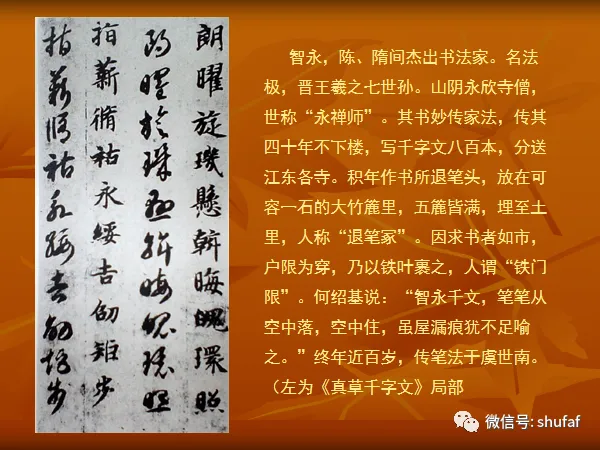 朗曜旋璣懸斡晦魄環照
朗曜旋璣懸斡晦魄環照
指薪脩祜永綏吉劭矩步
指薪脩祜永綏吉劭矩步
智永，陈、隋间杰出书法家。名法
极，晋王羲之七世孙。山阴永欣寺僧，
世称“永禅师”。其书妙传家法，传其
四十年不下楼，写千字文八百本，分送
江东各寺。积年作书所退笔头，放在可
容一石的大竹簏里，五簏皆满，埋至土
里，人称“退笔冢”。因求书者如市，
户限为穿，乃以铁叶裹之，人谓“铁门
限”。何绍基说：“智永千文，笔笔从
空中落，空中住，虽屋漏痕犹不足喻
之。”终年近百岁，传笔法于虞世南。
（左为《真草千字文》局部
微信号: shufaf